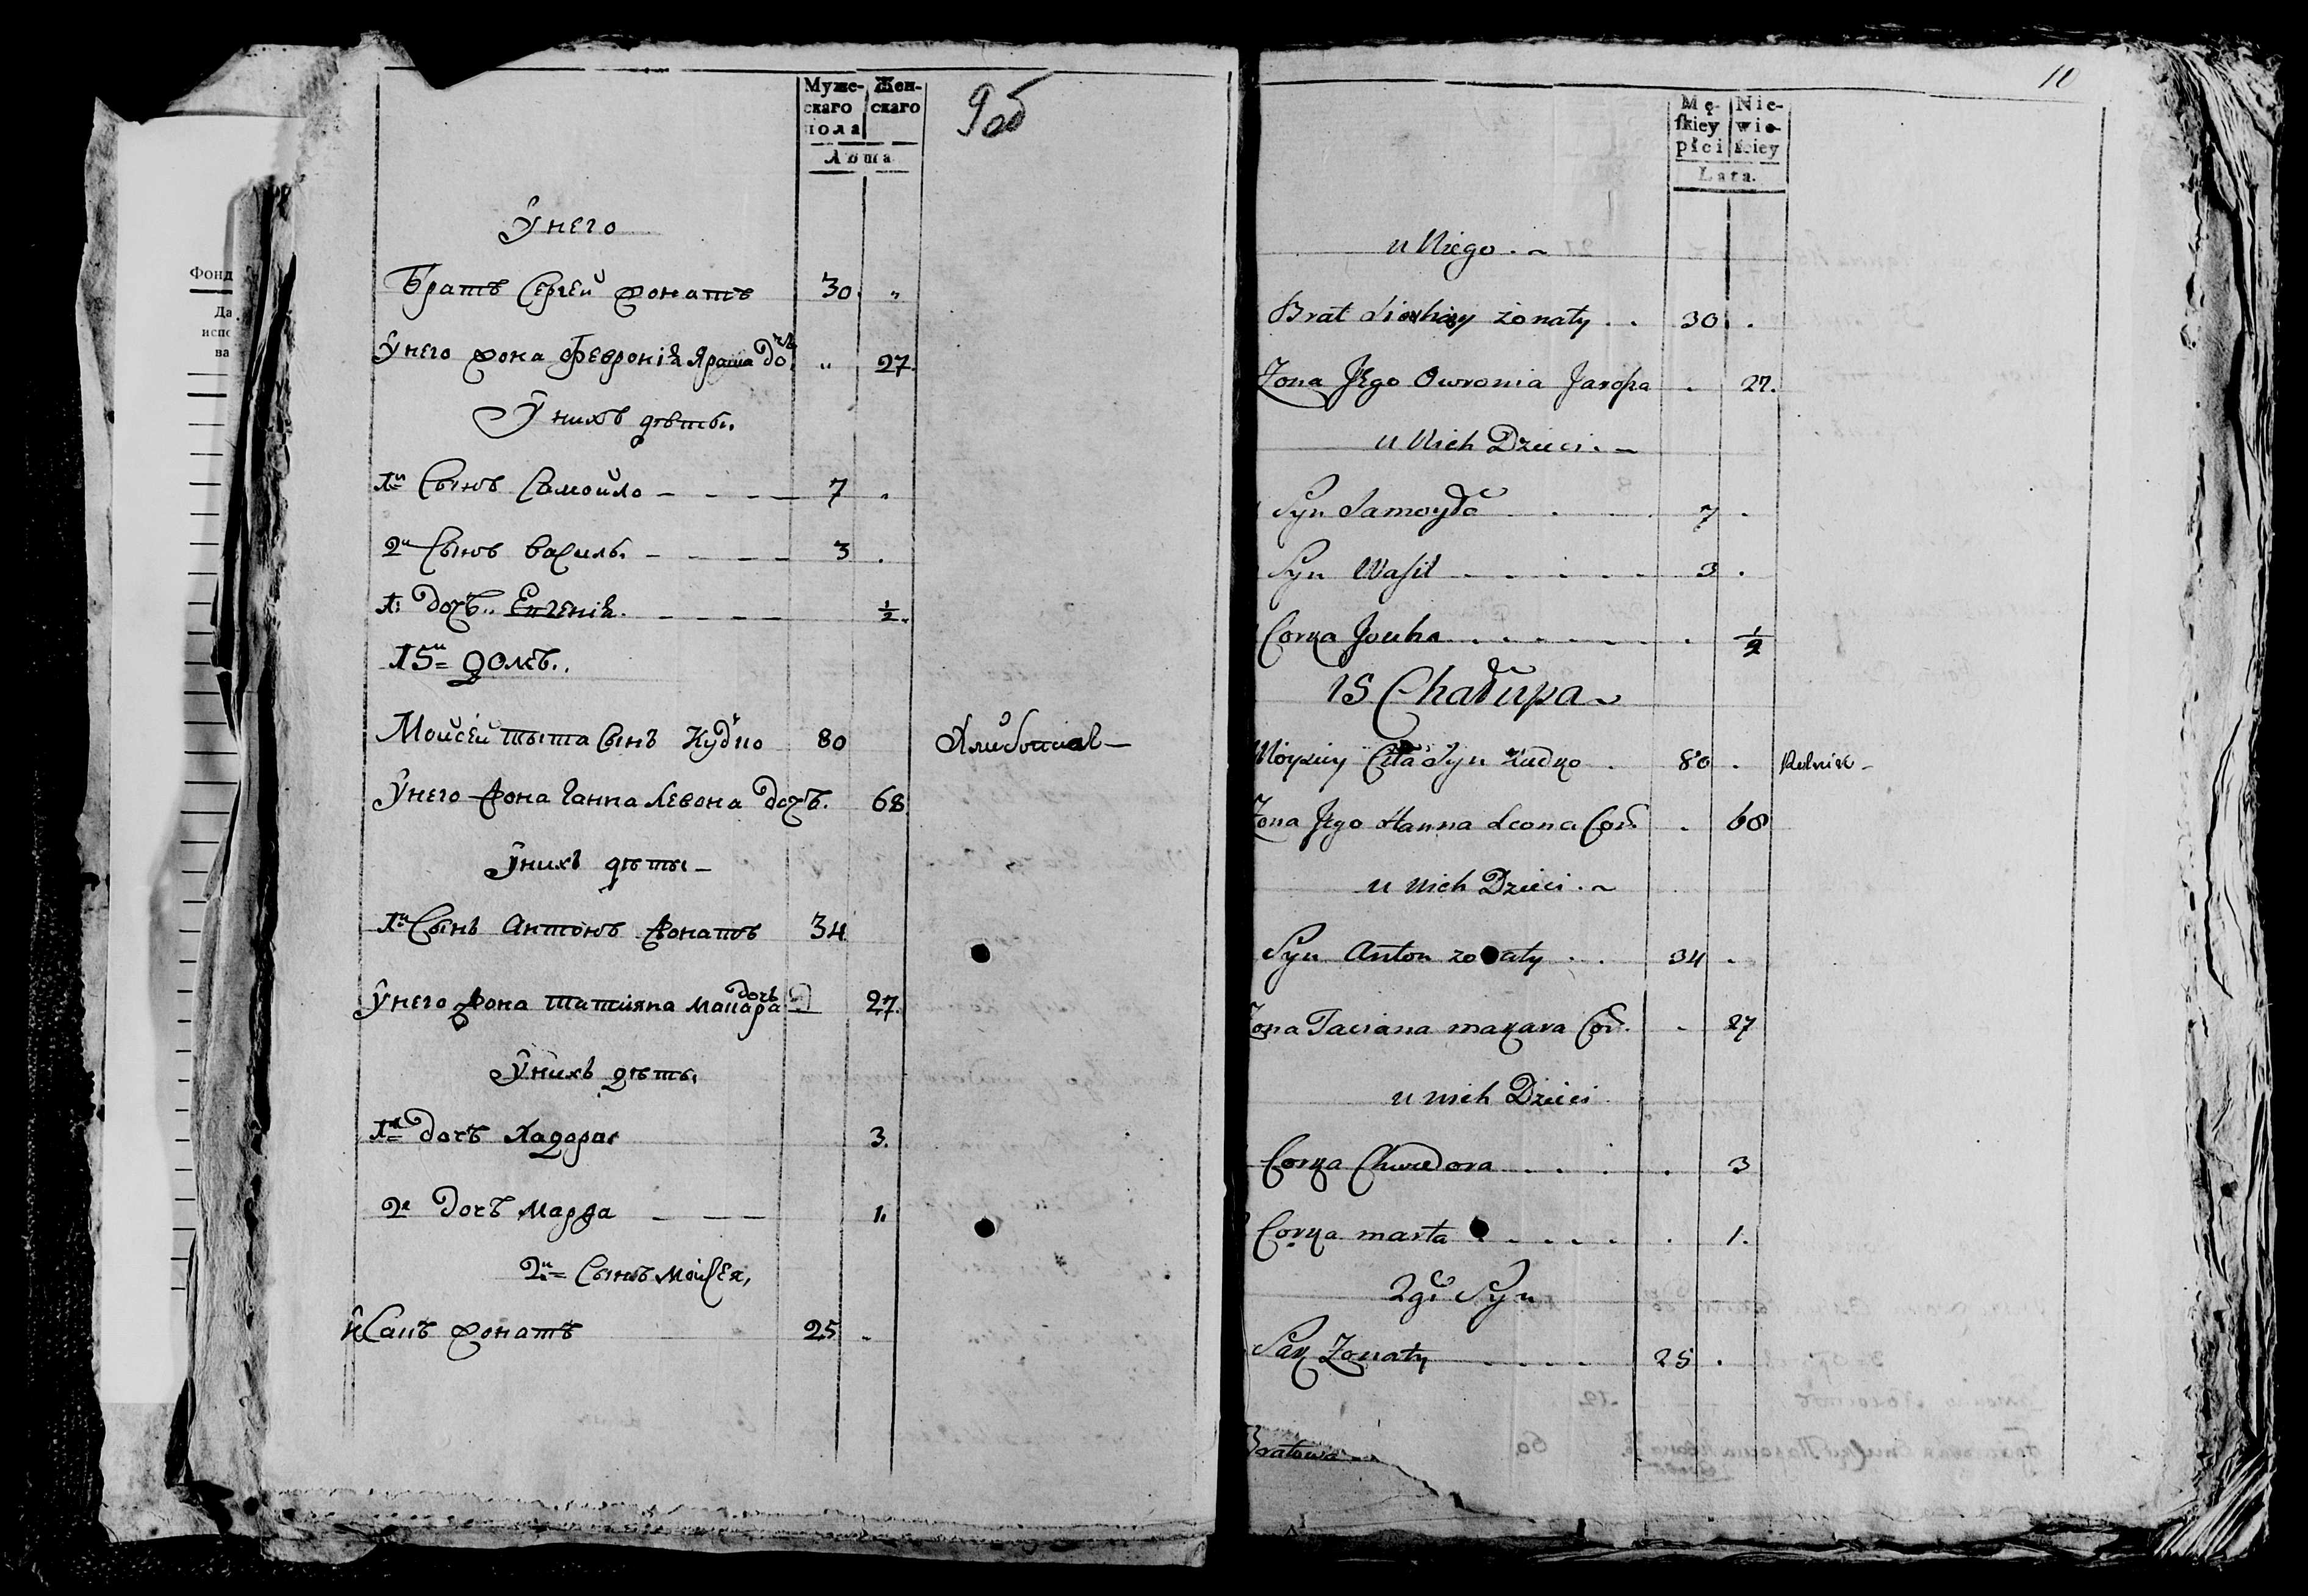 Муже-
скаго
пола
Жен-
скаго
Лѣта
9об
Унего
Братъ Сергей жонатъ 30 "
Унего жона Февронія Яроша дочъ " 27.
Унихъ дѣты.
1й Сынъ Самойло - - - 7 .
2й Сынъ Василь. - - - 3 .
1. Дочъ .. - - - ½.
15й домъ..
Мойсей тыта Сынъ Кудко 80
Унего жона Ганна Левона дочъ. 68
Унихъ дѣты -
1й Сынъ Антонъ жонатъ 34
Унего жона татияна Макара дочъ 27.
Унихъ дѣты.
1я дочъ Хадора 3.
2я дочъ Марта - - - 1.
2й Сынъ Моисея,
Исакъ жонатъ 25 .
10
Mę-
skiey
płci
Nie-
wie-
ściey
Lata.
u Niego . ~
Brat żonaty . . 30 .
Zona Jego Owronia Jarosza . 27.
u Nich Dzieci . ~
Syn Samoyło . . . 7 .
Syn Wasil . . . . . . 3 .
Corka . . . . . . . ½
15 Chałupa ~
Moyziey Cita Syn Kudko . 80 . Rolnik -
Zona Jego Hanna Leona Cor. . 68
u nich Dzieci . ~
Syn Anton zo aty . . 34 .
Zona Taciana makara Cor. . 27
u nich Dzieci .
Corka Chwedora . . . . . 3
Corka marta . . . . . . 1.
2gi Syn
Sak Zonaty . . . . 25 .
Bratowa